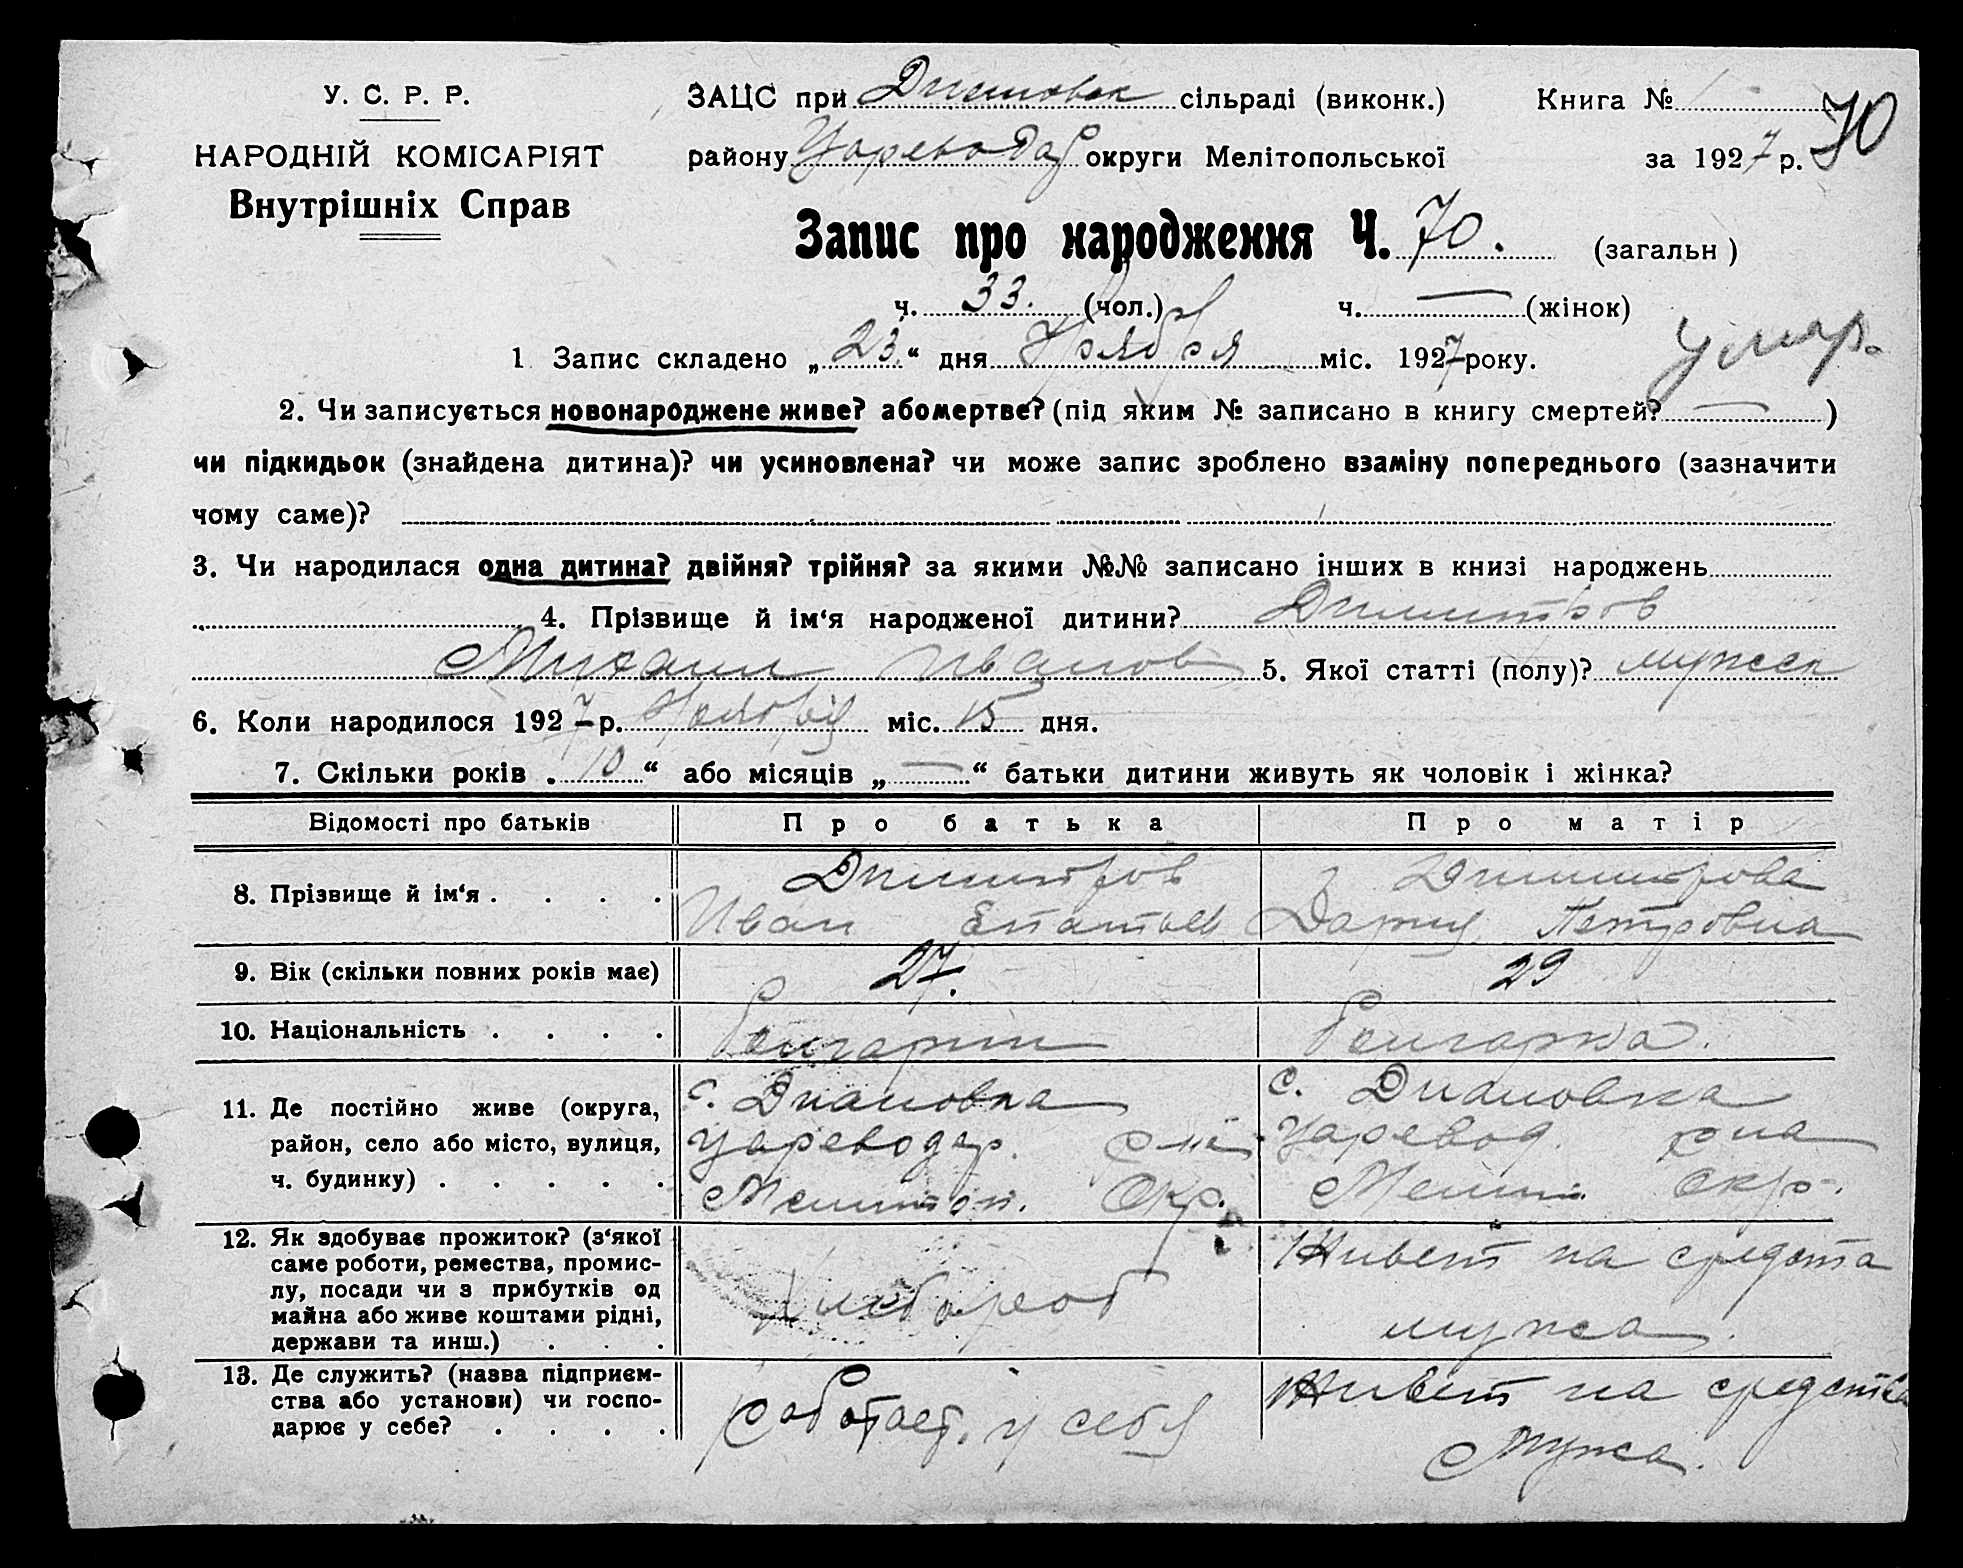 У. С. Р. Р.
НАРОДНІЙ КОМІСАРІЯТ
Внутрішніх Справ
ЗАЦС при Диановск сільраді (виконк.) Книга № 1
70
району Цареводар округи Мелітопольської за 1927 р.
Запис про народження Ч. 70. (загальн)
ч. 33. (чол.) ч. — (жінок)
1 Запис складено „23“ дня Ноября міс. 1927 року.
умер.
2. Чи записується новонароджене живе? або мертве? (під яким № записано в книгу смертей? — )
чи підкидьок (знайдена дитина)? чи усиновлена? чи може запис зроблено взаміну попереднього (зазначити
чому саме)?
3. Чи народилася одна дитина? двійня? трійня? за якими №№ записано інших в книзі народжень
4. Прізвище й ім‘я народженої дитини? Димитров
Михаил Иванов 5. Якої статті (полу)? мужск
6. Коли народилося 1927 – р. Ноября міс. 15 дня.
7. Скільки років „10“ або місяців „—“ батьки дитини живуть як чоловік і жінка?
Відомості про батьків Про батька Про матір
8. Прізвище й ім‘я . . . . Димитров Димитрова
Иван Дария Петровна
9. Вік (скільки повних років має) 27. 29
10. Національність . . . . Болгарин Болгарка.
11. Де постійно живе (округа, с. Диановка с. Диановка
район, село або місто, вулиця, Цареводар. Царевод.
ч. будинку) . . . . . Мелитоп. Окр. Мелит. окр.
12. Як здобуває прожиток? (з‘якої Живет на средства
саме роботи, ремества, промис-
лу, посади чи з прибутків од Хлебороб
майна або живе коштами рідні, мужа.
держави та инш.) . . .
13. Де служить? (назва підприєм- Живет на средства
ства або установи) чи госпо- Работает у себя
дарює у себе? . . . . Мужа.